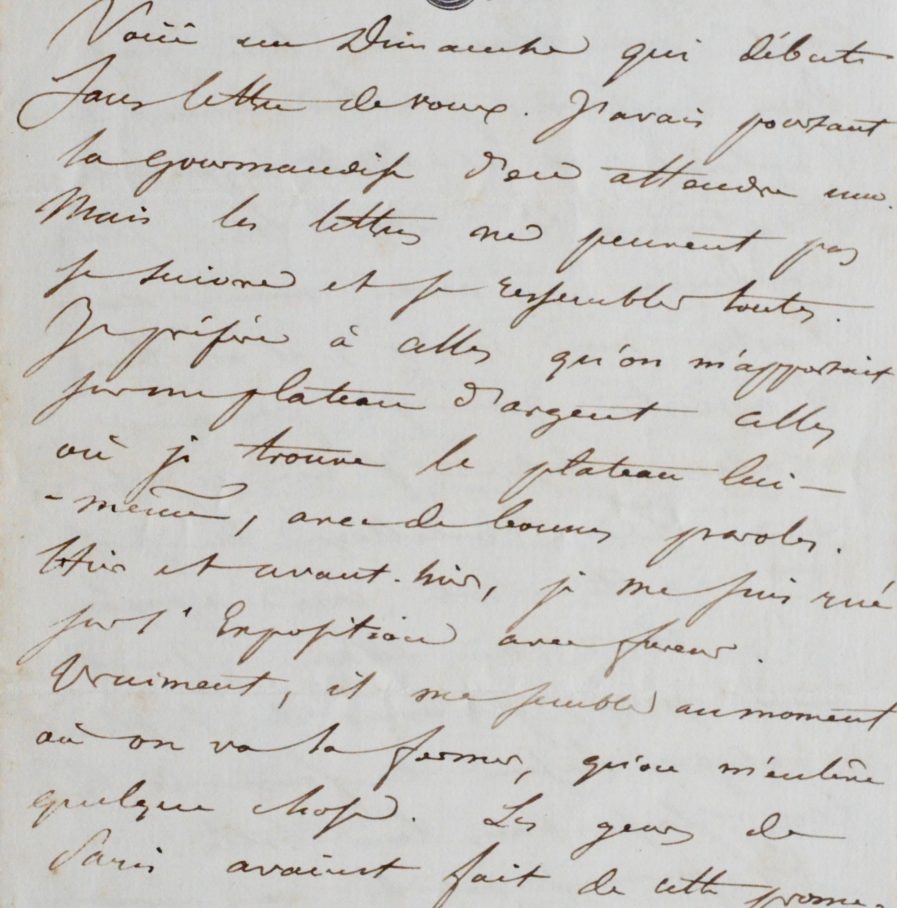 Voici un Dimanche qui débute
sans lettre de vous. J'avais pourtant
la gourmandise d'en attendre une.
Mais les lettres ne peuvent pas
se suivre et se ressembler toutes.
Je préfère à celles qu'on m'apportait
sur un plateau d'argent celles
où je trouve le plateau lui-
-même, avec de bonnes paroles.
Hier et avant-hier, je me suis rué
sur l'Exposition avec fureur.
Vraiment, il me semble au moment
où on va la fermer, qu'on m'enlève
quelque chose. Les gens de
Paris avaient fait de cette prome-